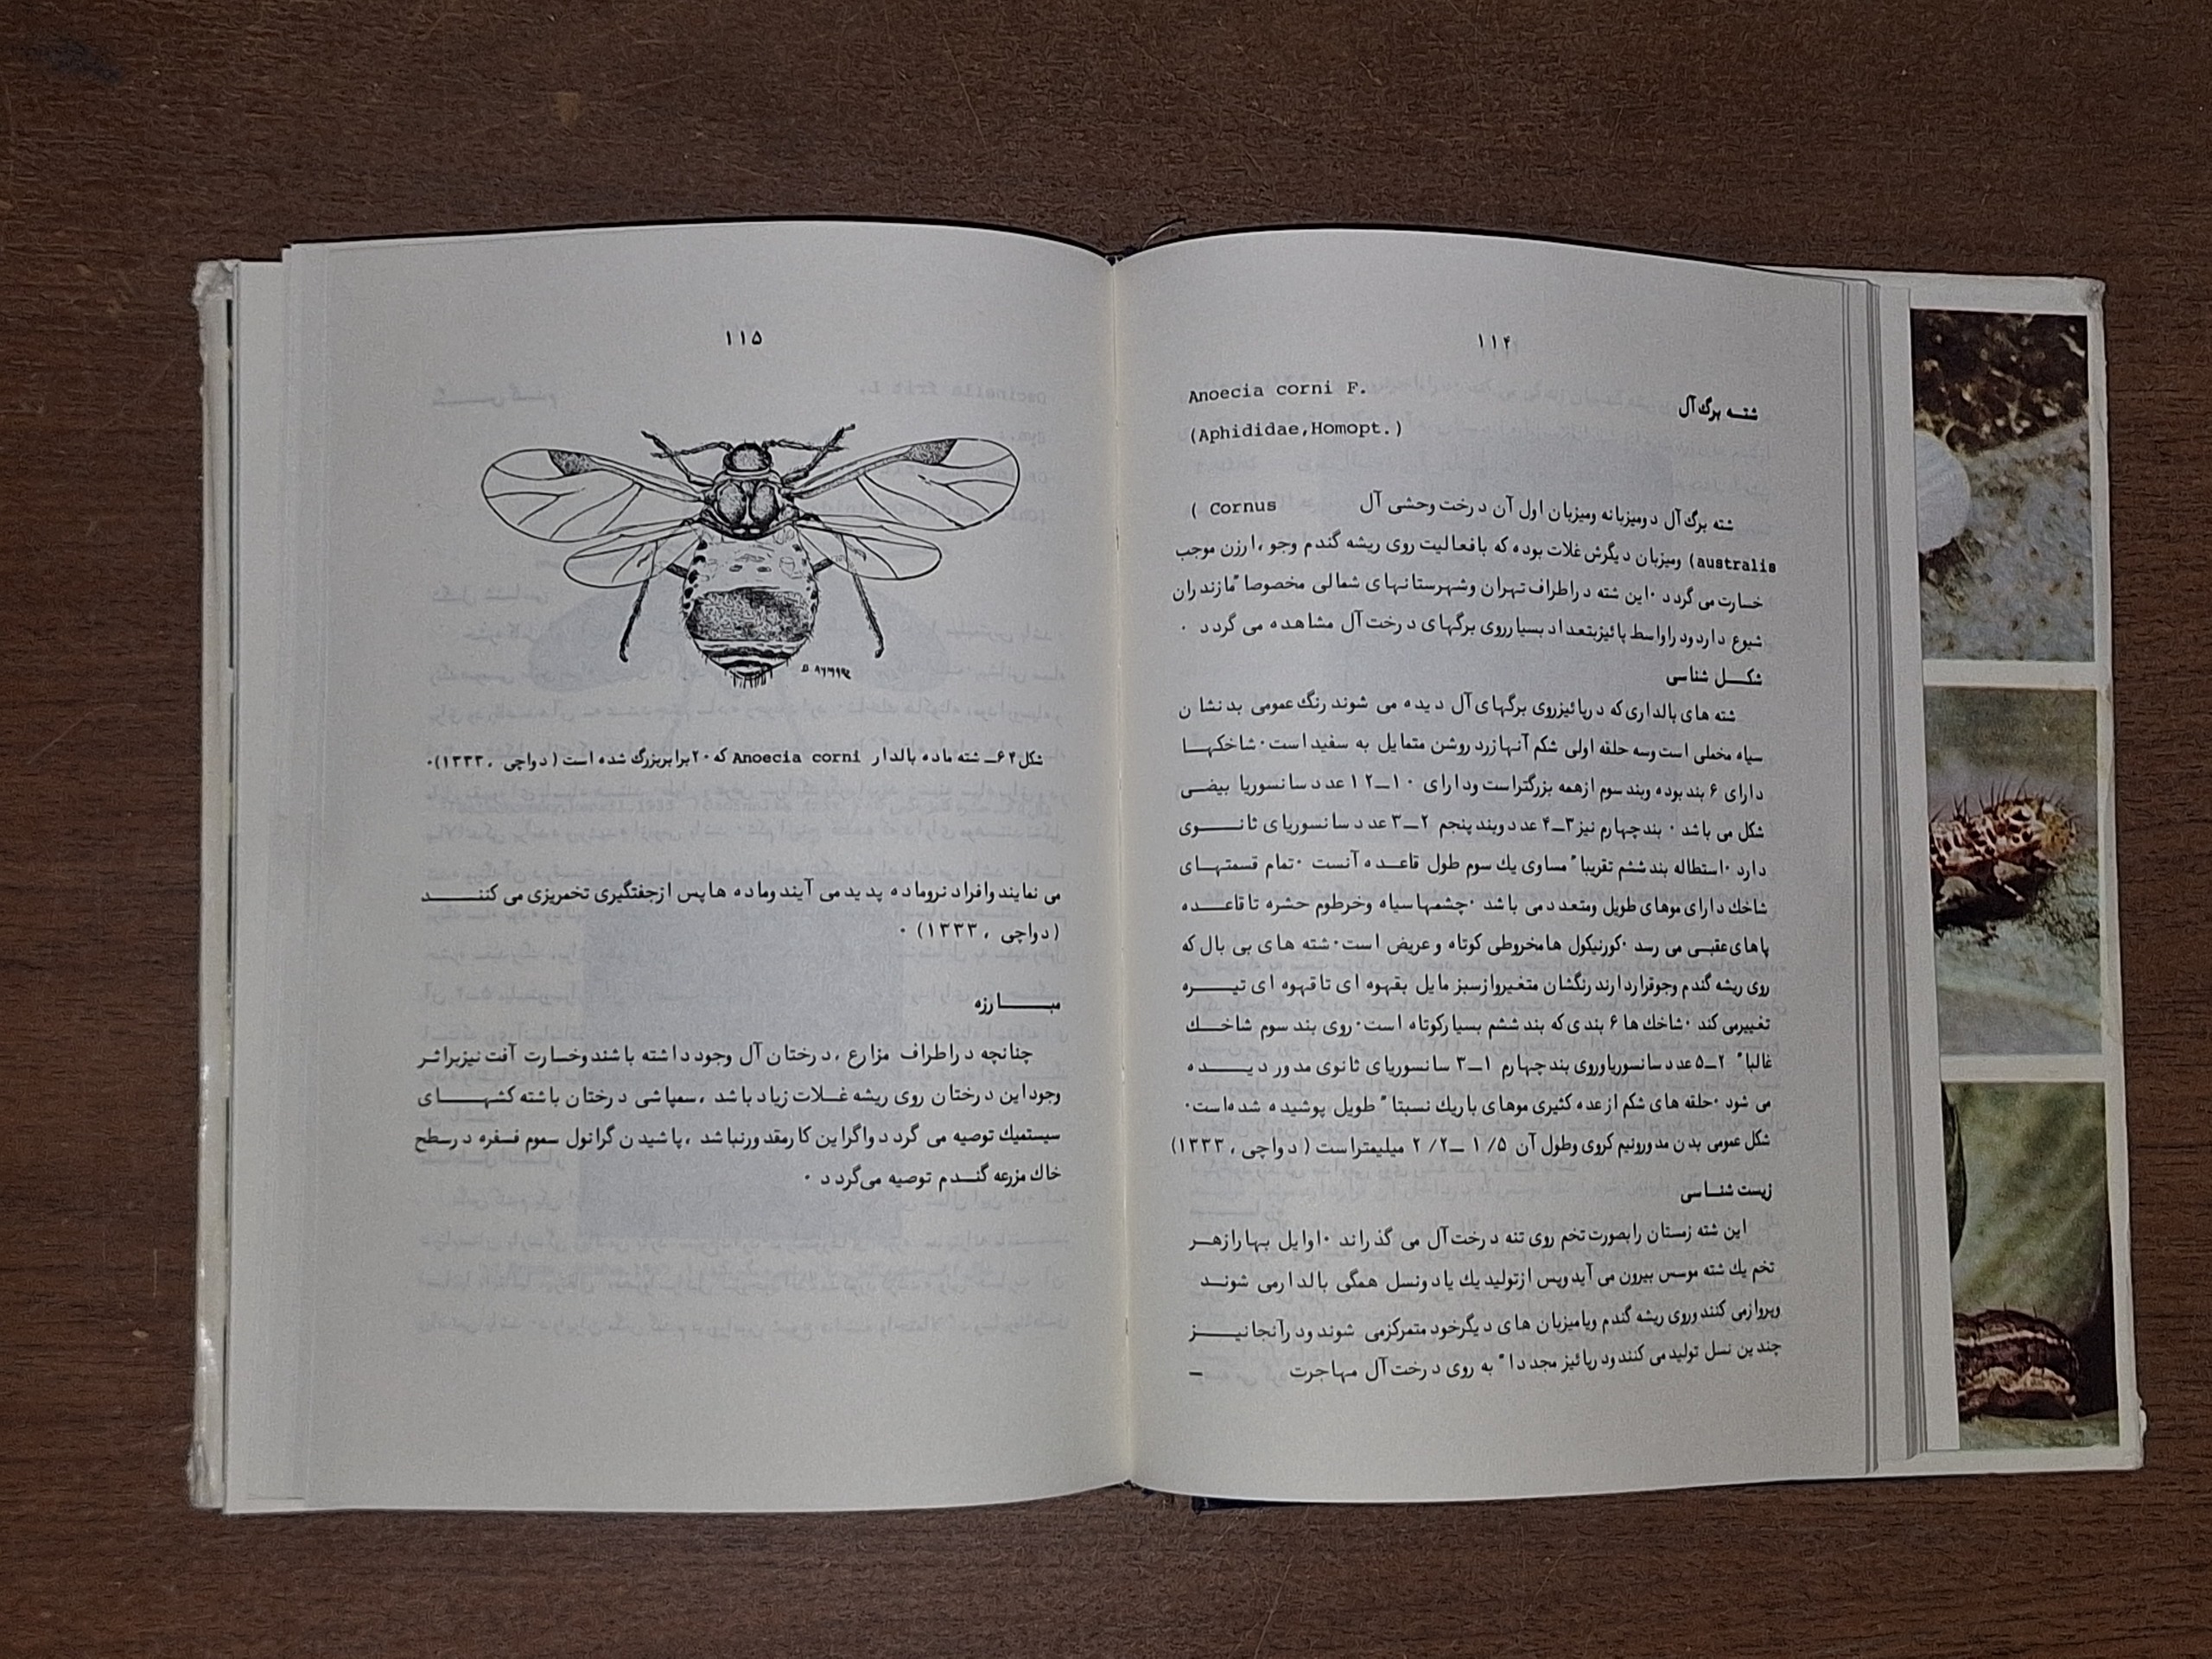 ۱۱۴
شته برگ آل Anoecia corni F.
(Aphididae,Homopt.)
شته برگ آل دومیزبانه ومیزبان اول آن درخت وحشی آل ( Cornus
australis) ومیزبان دیگرش غلات بوده که بافعالیت روی ریشه گندم وجو ،ارزن موجب
خسارت می گردد ۰این شته دراطراف تهران وشهرستانهای شمالی مخصوصا ً مازندران
شیوع داردودراواسط پائیزبتعداد بسیارروی برگهای درخت آل مشاهده می گردد ۰
شکل شناسی
شته های بالداری که درپائیزروی برگهای آل دیده می شوند رنگ عمومی بدنشان
سیاه مخملی است وسه حلقه اولی شکم آنهازرد روشن متمایل به سفید است۰شاخکها
دارای ۶ بند بوده وبند سوم ازهمه بزرگتراست ودارای ۱۰-۱۲ عدد سانسوریا بیضی
شکل می باشد ۰ بند چهارم نیز۳-۴ عدد وبند پنجم ۲-۳ عدد سانسوریای ثانوی
دارد ۰استطاله بند ششم تقریبا ً مساوی یك سوم طول قاعده آنست ۰تمام قسمتهای
شاخك دارای موهای طویل ومتعدد می باشد ۰چشمها سیاه وخرطوم حشره تا قاعده
پاهای عقبی می رسد ۰کورنیکول ها مخروطی کوتاه و عریض است۰شته های بی بال که
روی ریشه گندم وجوقراردارند رنگشان متغیروازسبز مایل بقهوه ای تا قهوه ای تیره
تغییرمی کند ۰شاخك ها ۶ بندی که بند ششم بسیارکوتاه است۰روی بند سوم شاخك
غالبا ً ۲-۵ عدد سانسوریاوروی بند چهارم ۱-۳ سانسوریای ثانوی مدور دیده
می شود ۰حلقه های شکم ازعده کثیری موهای باریك نسبتا ً طویل پوشیده شده است۰
شکل عمومی بدن مدورونیم کروی وطول آن ۱/۵ -۲/۲ میلیمتراست ( دواچی ، ۱۳۳۳)
زیست شناسی
این شته زستان رابصورت تخم روی تنه درخت آل می گذراند ۰اوایل بهارازهر
تخم یك شته موسس بیرون می آید وپس ازتولید یك یا دونسل همگی بالدارمی شوند
وپروازمی کنند وروی ریشه گندم ویامیزبان های دیگرخود متمرکزمی شوند ودرآنجا نیز
چندین نسل تولید می کنند ودرپائیز مجددا ً به روی درخت آل مهاجرت -
۱۱۵
شکل ۶۴- شته ماده بالدار Anoecia corni که ۲۰ برابربزرگ شده است ( دواچی ، ۱۳۳۳)۰
می نمایند وافراد نروماده پدید می آیند وماده ها پس ازجفتگیری تخمریزی می کنند
(دواچی ، ۱۳۳۳) ۰
مبارزه
چنانچه دراطراف مزارع ،درختان آل وجود داشته باشند وخسارت آفت نیزبراثر
وجود این درختان روی ریشه غلات زیاد باشد ،سمپاشی درختان باشته کشهای
سیستمیك توصیه می گردد واگراین کارمقدورنباشد ،پاشیدن گرانول سموم فسفره درسطح
خاك مزرعه گندم توصیه می گردد ۰